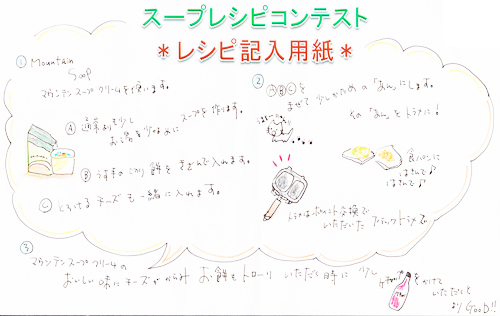 スープレシピコンテスト
＊レシピ記入用紙＊
① Mountain
Soop
マウンテンスープクリームを使います。
Ⓐ 通常よりも少し
お湯を少なめに スープを作ります。
Ⓑ うす手の 餅をきざんで入れます。
Ⓒ とろけるチーズも一緒に入れます。
② ⒶⒷⒸを
まぜて少しかための「あん」にします。
その「あん」をトラメに!
食パンに
はさんで♪
はさんで♪
トラメはポイント交換で
いただいた ブラックトラメで
③
マウンテンスープクリームの
おいしい味にチーズがからみ お餅もトローリ いただく時に 少し
ケチャップ をかけて
いただくと
より GooD!!